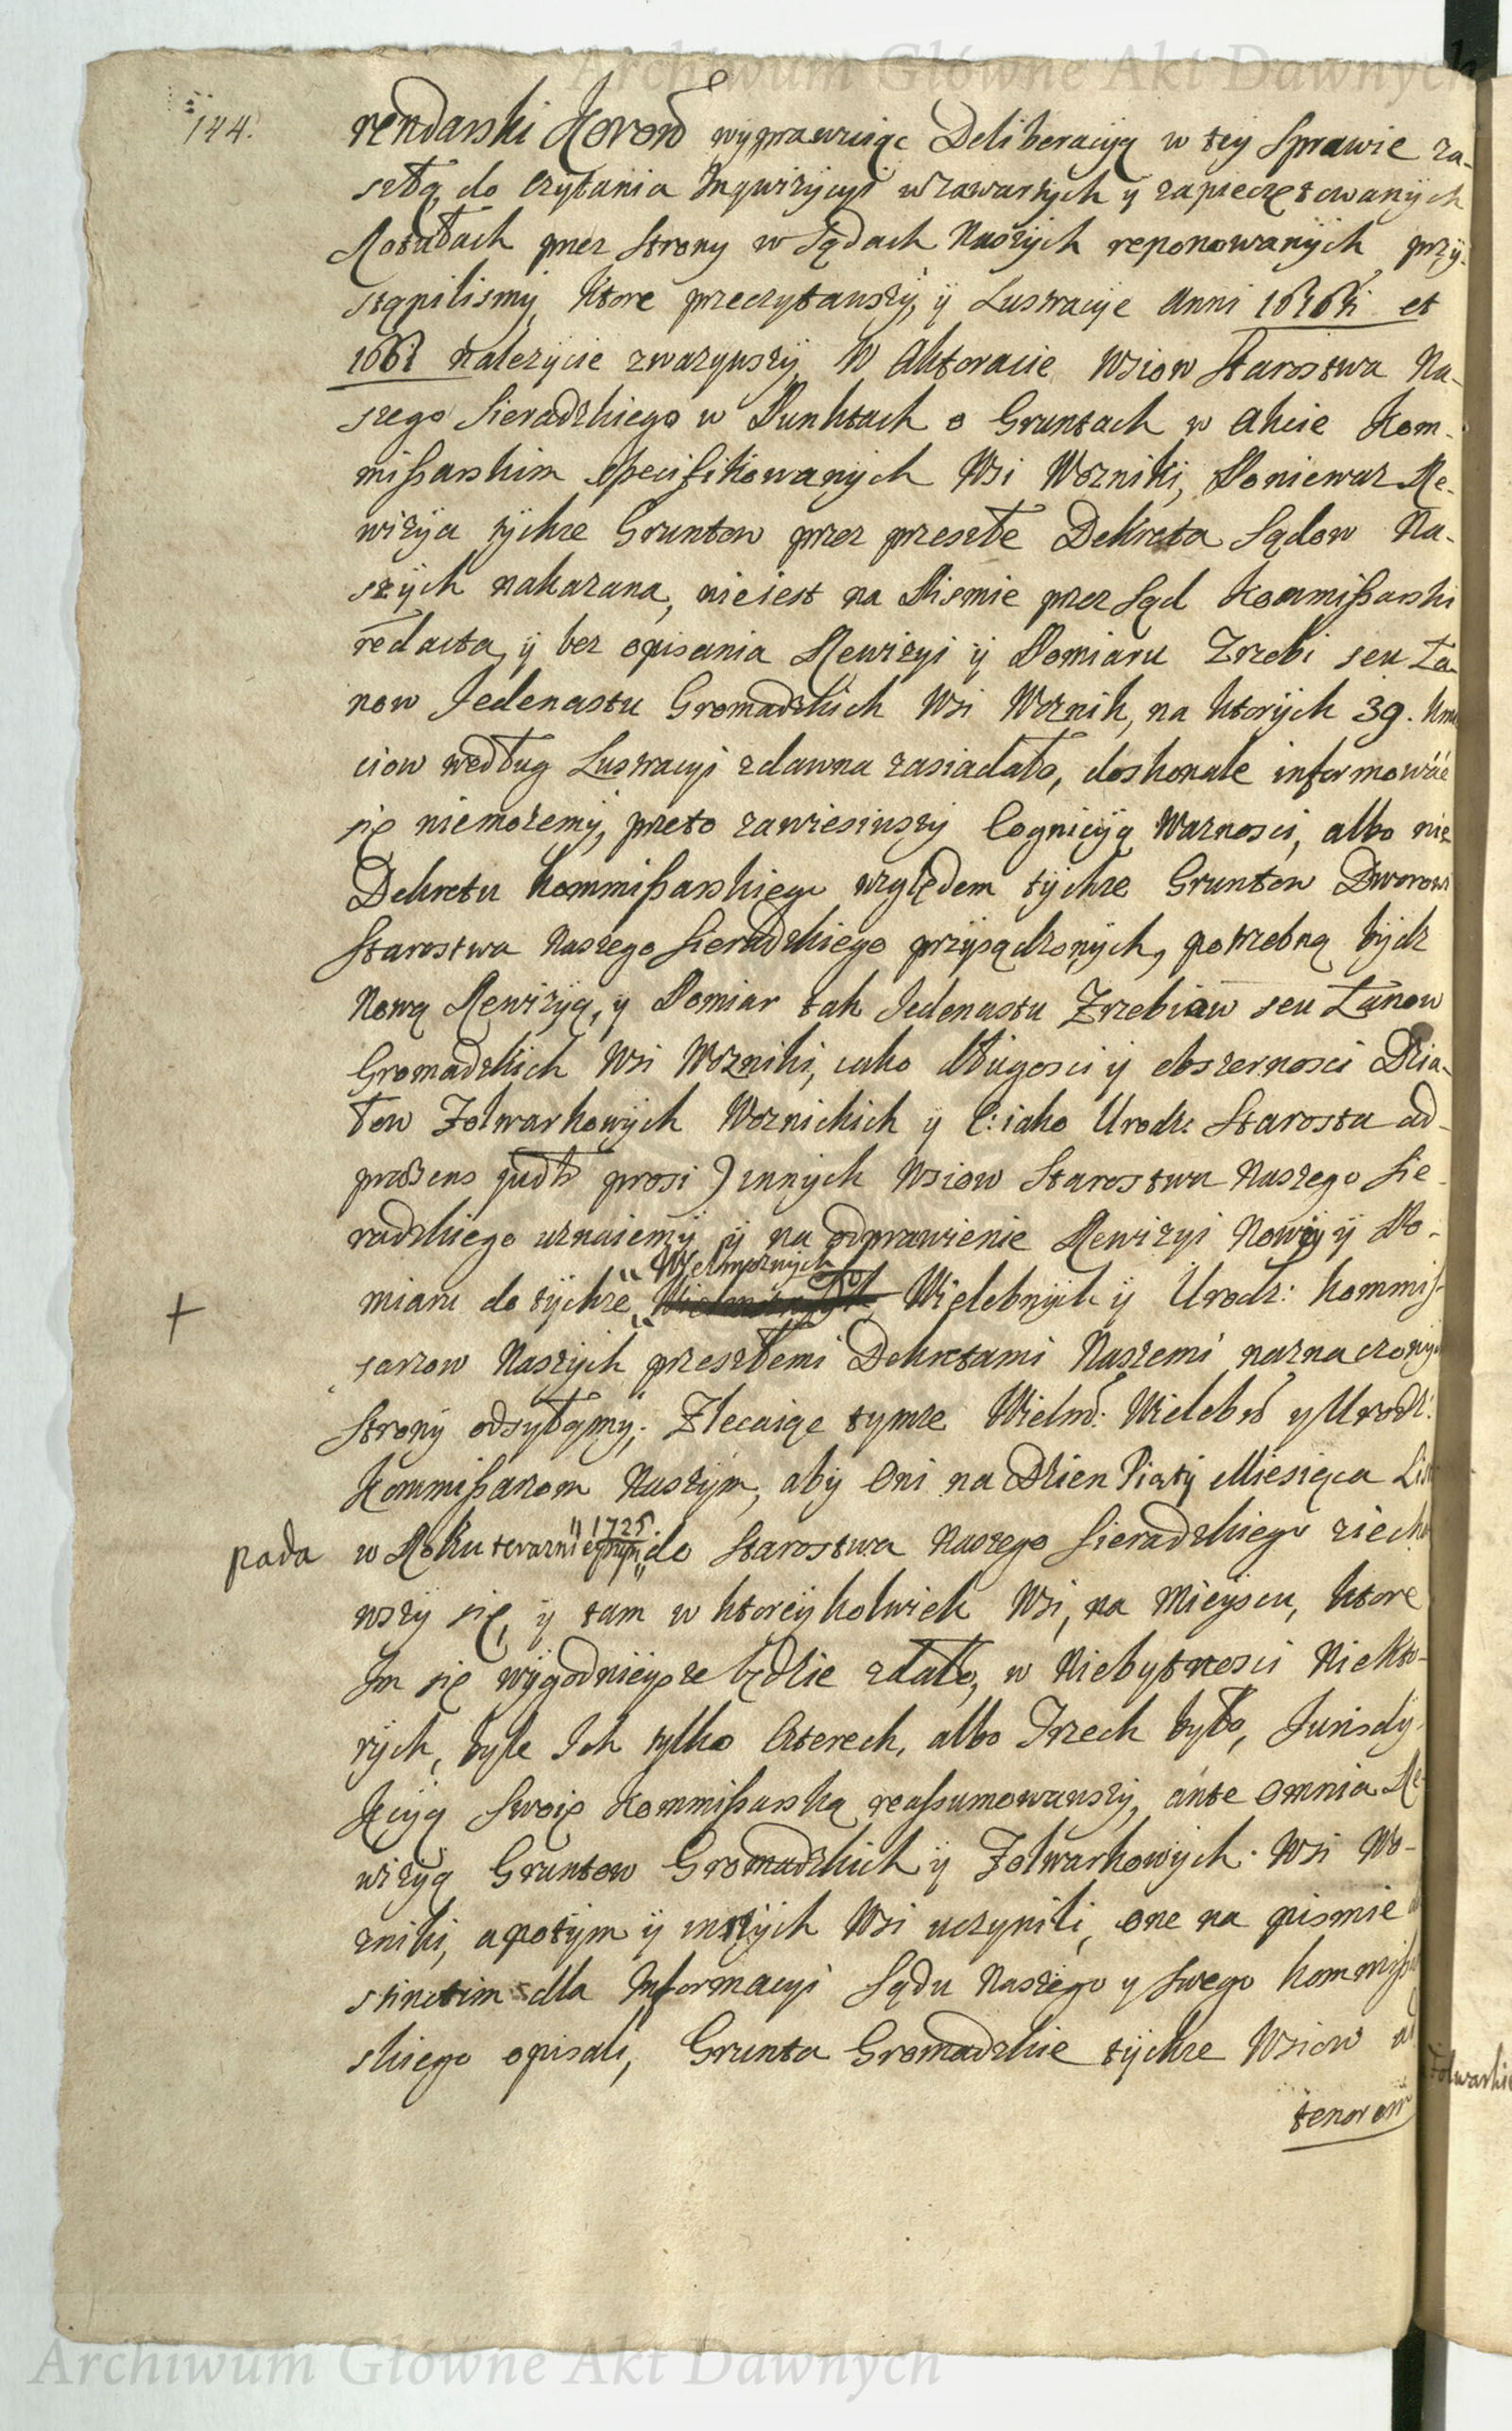 Archiwum Główne Akt Dawnych
144.
rendarski Koron wyprawuiąc Deliberacyą w tey Sprawie za-
szłą, do czytania Inqwizycyi w zawartych y zapieczętowanych
Rotułach przez Strony w Sądach Naszych reponowanych przy-
stąpilismy, ktore przeczytawszy, y Lustracye Anni et
należycie zważywszy, W Aktoracie Wsiow Starostwa Na-
szego Sieradzkiego w Punktach o Gruntach w Akcie Kom-
missarskim specifikowanych Wsi Wozniki, Poniewaz Re-
wizya tychze Gruntow przez przeszłe Dekreta Sądow Na-
szych nakazana, nieiest na Pismie przez Sąd Kommissarski
redacta, y bez opisania Rewizyi y Pomiaru Zrzebi seu Ła-
now Jedenastu Gromadzkich Wsi Woznik, na ktorych 39. Kmi
ciow według Lustracyi zdawna zasiadało, doskonale informować
się niemożemy, przeto zawiesiwszy Cognicyą Waznosci, albo nie
Dekretu Kommissarskiego względem tychze Gruntow Dworowi
Starostwa Naszego Sieradzkiego przysądzonych, potrzebną bydz
Nową Rewizyą, y Pomiar tak Jedenastu Zrzebiow seu Łanow
Gromadzkich Wsi Wozniki, iako długosci y obszernosci Dzia-
łow Folwarkowych Woznickich y (: iako Urodz: Starosta ad
præsens prosi) innych Wsiow Starostwa Naszego Sie-
radzkiego uznaiemy y na odprawienie Rewizyi Nowey y Po-
" Wielmoznych
+ miaru do tychze " Wielebnych y Urodz: Kommis-
sarzow Naszych przeszłemi Dekretami Naszemi naznaczonych
Strony odsyłamy; Zlecaiąc tymze Wielm: Wieleb y Urodz:
Kommissarzom Naszym, aby Oni na Dzien Piąty Miesiąca Lis
" 1725.
pada w Roku teraznieyszym " do Starostwa Naszego Sieradzkiego ziecha
wszy się, y tam w ktoreykolwiek Wsi, na Mieyscu, ktore
Im się wygodnieysze będzie zdało, w Niebytnosci Niekto-
rych, byle Ich tylko Czterech, albo Trzech było, Jurisdy-
kcyą Swoię Kommissarską reassumowawszy, ante omnia Re
wizyą Gruntow Gromadzkich y Folwarkowych Wsi Wo-
zniki, a potym y innych Wsi uczynili, one na pismie
stinctim dla Informacyi Sądu Naszego y Swego Kommissar
skiego opisali, Grunta Gromadzkie tychze Wsiow
tenorem
Archiwum Główne Akt Dawnych